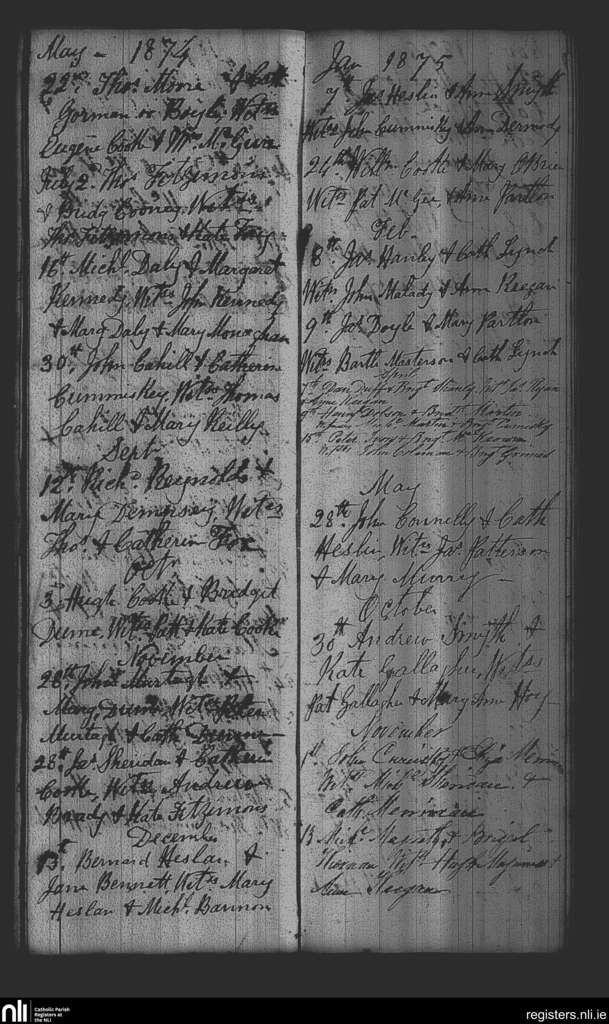 May - 1874
22nd Thos Moore & Cath
Gorman or Boyle, Wits
Eugene Cooke & Wm McGuire
July 2d Thos Fitzimons
& Bridg Cooney, Wits
Thos Fitzimons & Kate
16th Michl Daly & Margaret
Kennedy Wits Jhn Kennedy
& Marg Daly & Mary Monaghan
30th John Cahill & Catherin
Cummiskey, Wits Thomas
Cahill & Mary Reilly
Sept
12th Richd Reynolds &
Mary Dempsey Wits
Thos & Catherin Fox
Octr
3d Hugh Cooke & Bredget
Wits Patt & Kate Cooke
November
28th John Murtagh &
Mary Wits Peter
Murtagh & Cath
28th Jas Sheridan & Catherin
Cooke, Wits Andrew
Brady & Kate Fitzimons
December
13th Bernard Heslan &
Jane Bennett Wits Mary
Heslan & Michl Bannon
Jan 1875
7th Jas Heslin & Ann Smyth
Wits John Cummisky & Ann Dermody
24th Willm Cooke & Mary OBrien
Wits Pat McGee, & Ann Partlon
Feb
8th Jas Hanly & Cath Lynch
Wits John Malady & Ann Keegan
9th Jas Doyle & Mary Partlon
Wits Barth Masterson & Cath Lynch
April
7th Duff & Brigt
& Anne
9th Henry Dolson & Bridt Martin
Martin & Brigt Cumisky
15th Peter & Brigt
Wits John Coleman & Brigt
May
28th John Connelly & Cath
Heslin, Wits Jas Patterson
& Mary Murry
October
30th Andrew Smyth &
Kate Gallagher, Wits
Pat Gallagher & Mary Ann Hoy
November
1st John & Eliza
Wits Michl &
Cath
13 Michl & Brigid
Wits Hugh &
Anne Keegan
nli
Catholic Parish
Registers at
the NLI
registers.nli.ie